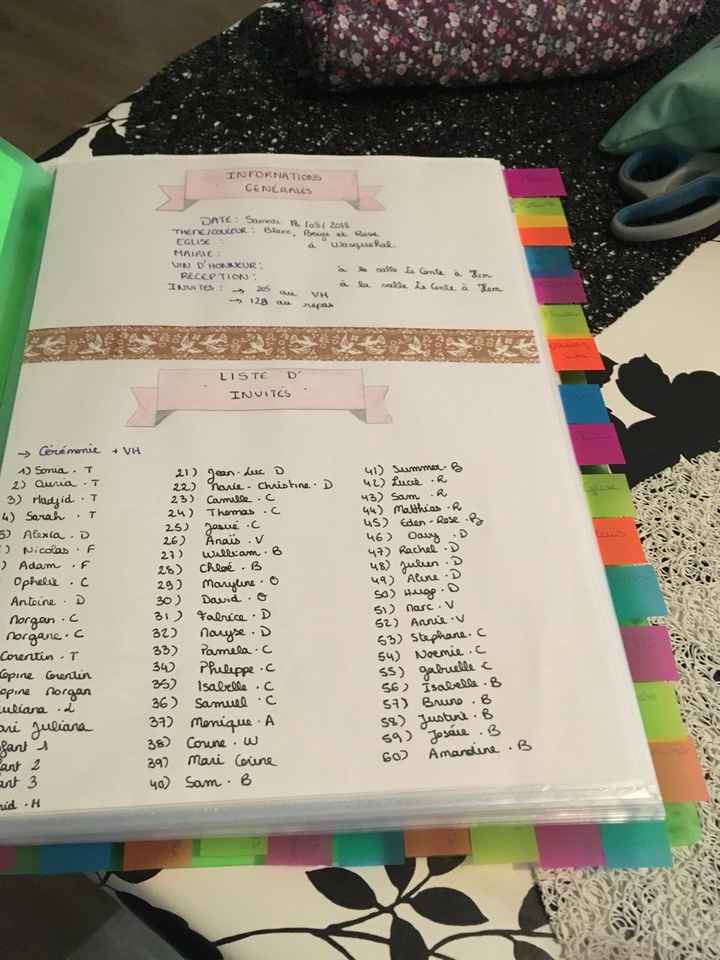 INFORMATIONS
GÉNÉRALES
DATE : Samedi /2018
THÈME/COULEUR : Blanc, Beige et Rose
EGLISE : à Wasquehal
MAIRIE :
VIN D'HONNEUR : à la salle Le Conte à Hem
RECEPTION : à la salle Le Conte à Hem
INVITÉS : → 205 au VH
→ 128 au repas
LISTE D'
INVITÉS
→ Cérémonie + VH
1) Sonia . T
2) Ouria . T
3) Madjid . T
4) Sarah . T
5) Alexia . D
) Nicolas . F
) Adam . F
Ophélie . C
Antoine . D
Morgan . C
Morgane . C
Corentin . T
Copine Corentin
opine Morgan
uliana . L
ari Juliana
fant 1
ant 2
ant 3
id . H
21) Jean-Luc D
22) Marie-Christine . D
23) Camille . C
24) Thomas . C
25) Josué . C
26) Anaïs . V
27) William . B
28) Chloé . B
29) Maryline . O
30) David . O
31) Fabrice . D
32) Maryse . D
33) Pamela . C
34) Philippe . C
35) Isabelle . C
36) Samuel . C
37) Monique . A
38) Corine . W
39) Mari Corine
40) Sam . B
41) Summer . B
42) Lucie . R
43) Sam . R
44) Matthias . R
45) Eden-Rose . B
46) Davy . D
47) Rachel . D
48) Julien . D
49) Aline . D
50) Hugo . D
51) Marc . V
52) Annie . V
53) Stéphane . C
54) Noémie . C
55) Gabrielle C
56) Isabelle . B
57) Bruno . B
58) Justine . B
59) Josée . B
60) Amandine . B